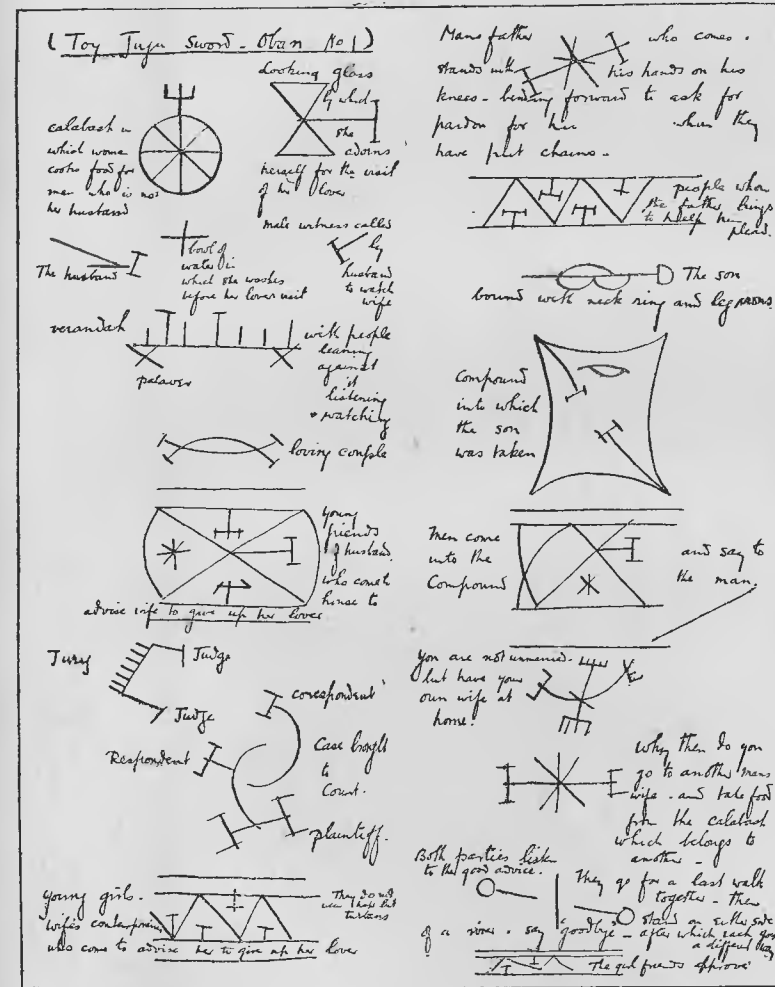 (Toy Juju Sword - Oban No 1)
calabash in
which woman
cooks food for
man who is not
her husband
Looking glass
by which
she
adorns
herself for the visit
of her lover
The husband
bowl of
water in
which she washes
before her lover visit
male witness called
by
husband
to watch
wife
verandah
with people
leaning
against
it
listening
& watching
palaver
loving couple
young
friends
of husband
who come to
house to
advise wife to give up her lover
Jury
Judge
Judge
corespondent
Respondent
Case brought
to
Court.
plaintiff.
young girls.
wife's contemporaries
who come to advise her to give up her lover
They do not
wear hats but
turbans
Mans father who comes.
stands with his hands on his
knees - bending forward to ask for
pardon for her when they
have put chains.
people whom
the father brings
to help him
plead.
The son
bound with neck ring and leg irons
Compound
into which
the son
was taken
Men come
into the
Compound
and say to
the man.
You are not unmarried.
but have your
own wife at
home!
Why then do you
go to another mans
wife - and take food
from the calabash
which belongs to
another -
Both parties listen
to the good advice.
They go for a last walk
together - then
stand on either side
of a river - say "goodbye" - after which each goes
a different way
The girl friends approve